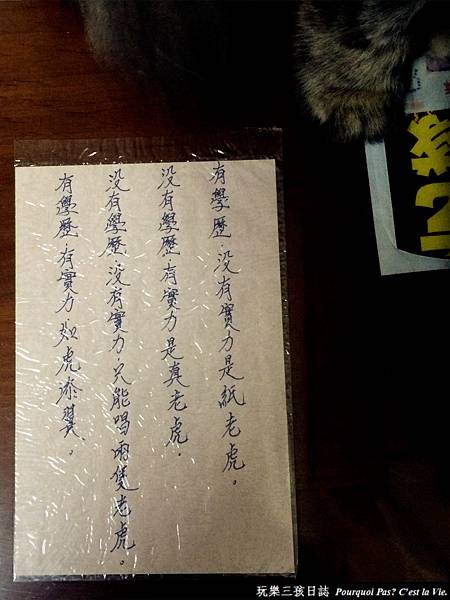 有學歷．没有實力是紙老虎。
没有學歷．有實力是真老虎．
没有學歷．没有實力．只能唱兩隻老虎。
有學歷．有實力．如虎添翼．。
玩樂三孩日誌 Pourquoi Pas? C'est la Vie.